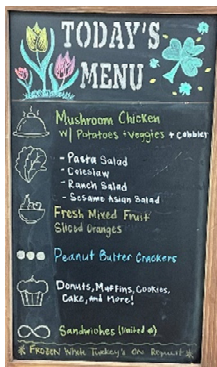 TODAY'S
MENU
Mushroom Chicken
W/ Potatoes + Veggies + Cobbler
- Pasta Salad
- Coleslaw
- Ranch Salad
- Sesame Asian Salad
Fresh Mixed Fruit
Sliced Oranges
Peanut Butter Crackers
Donuts, Muffins, Cookies,
Cake, and More!
Sandwiches (limited #)
* Frozen Whole Turkey's On Request *